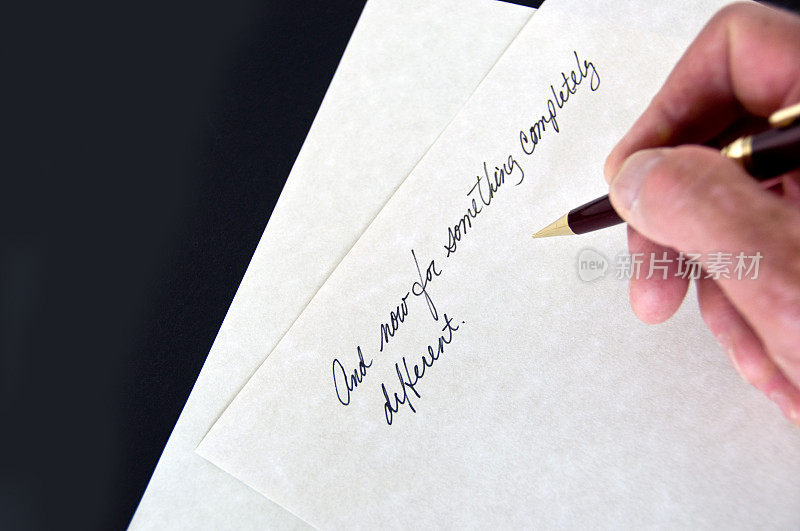 And now for something completely
different.
new 新片场 素材